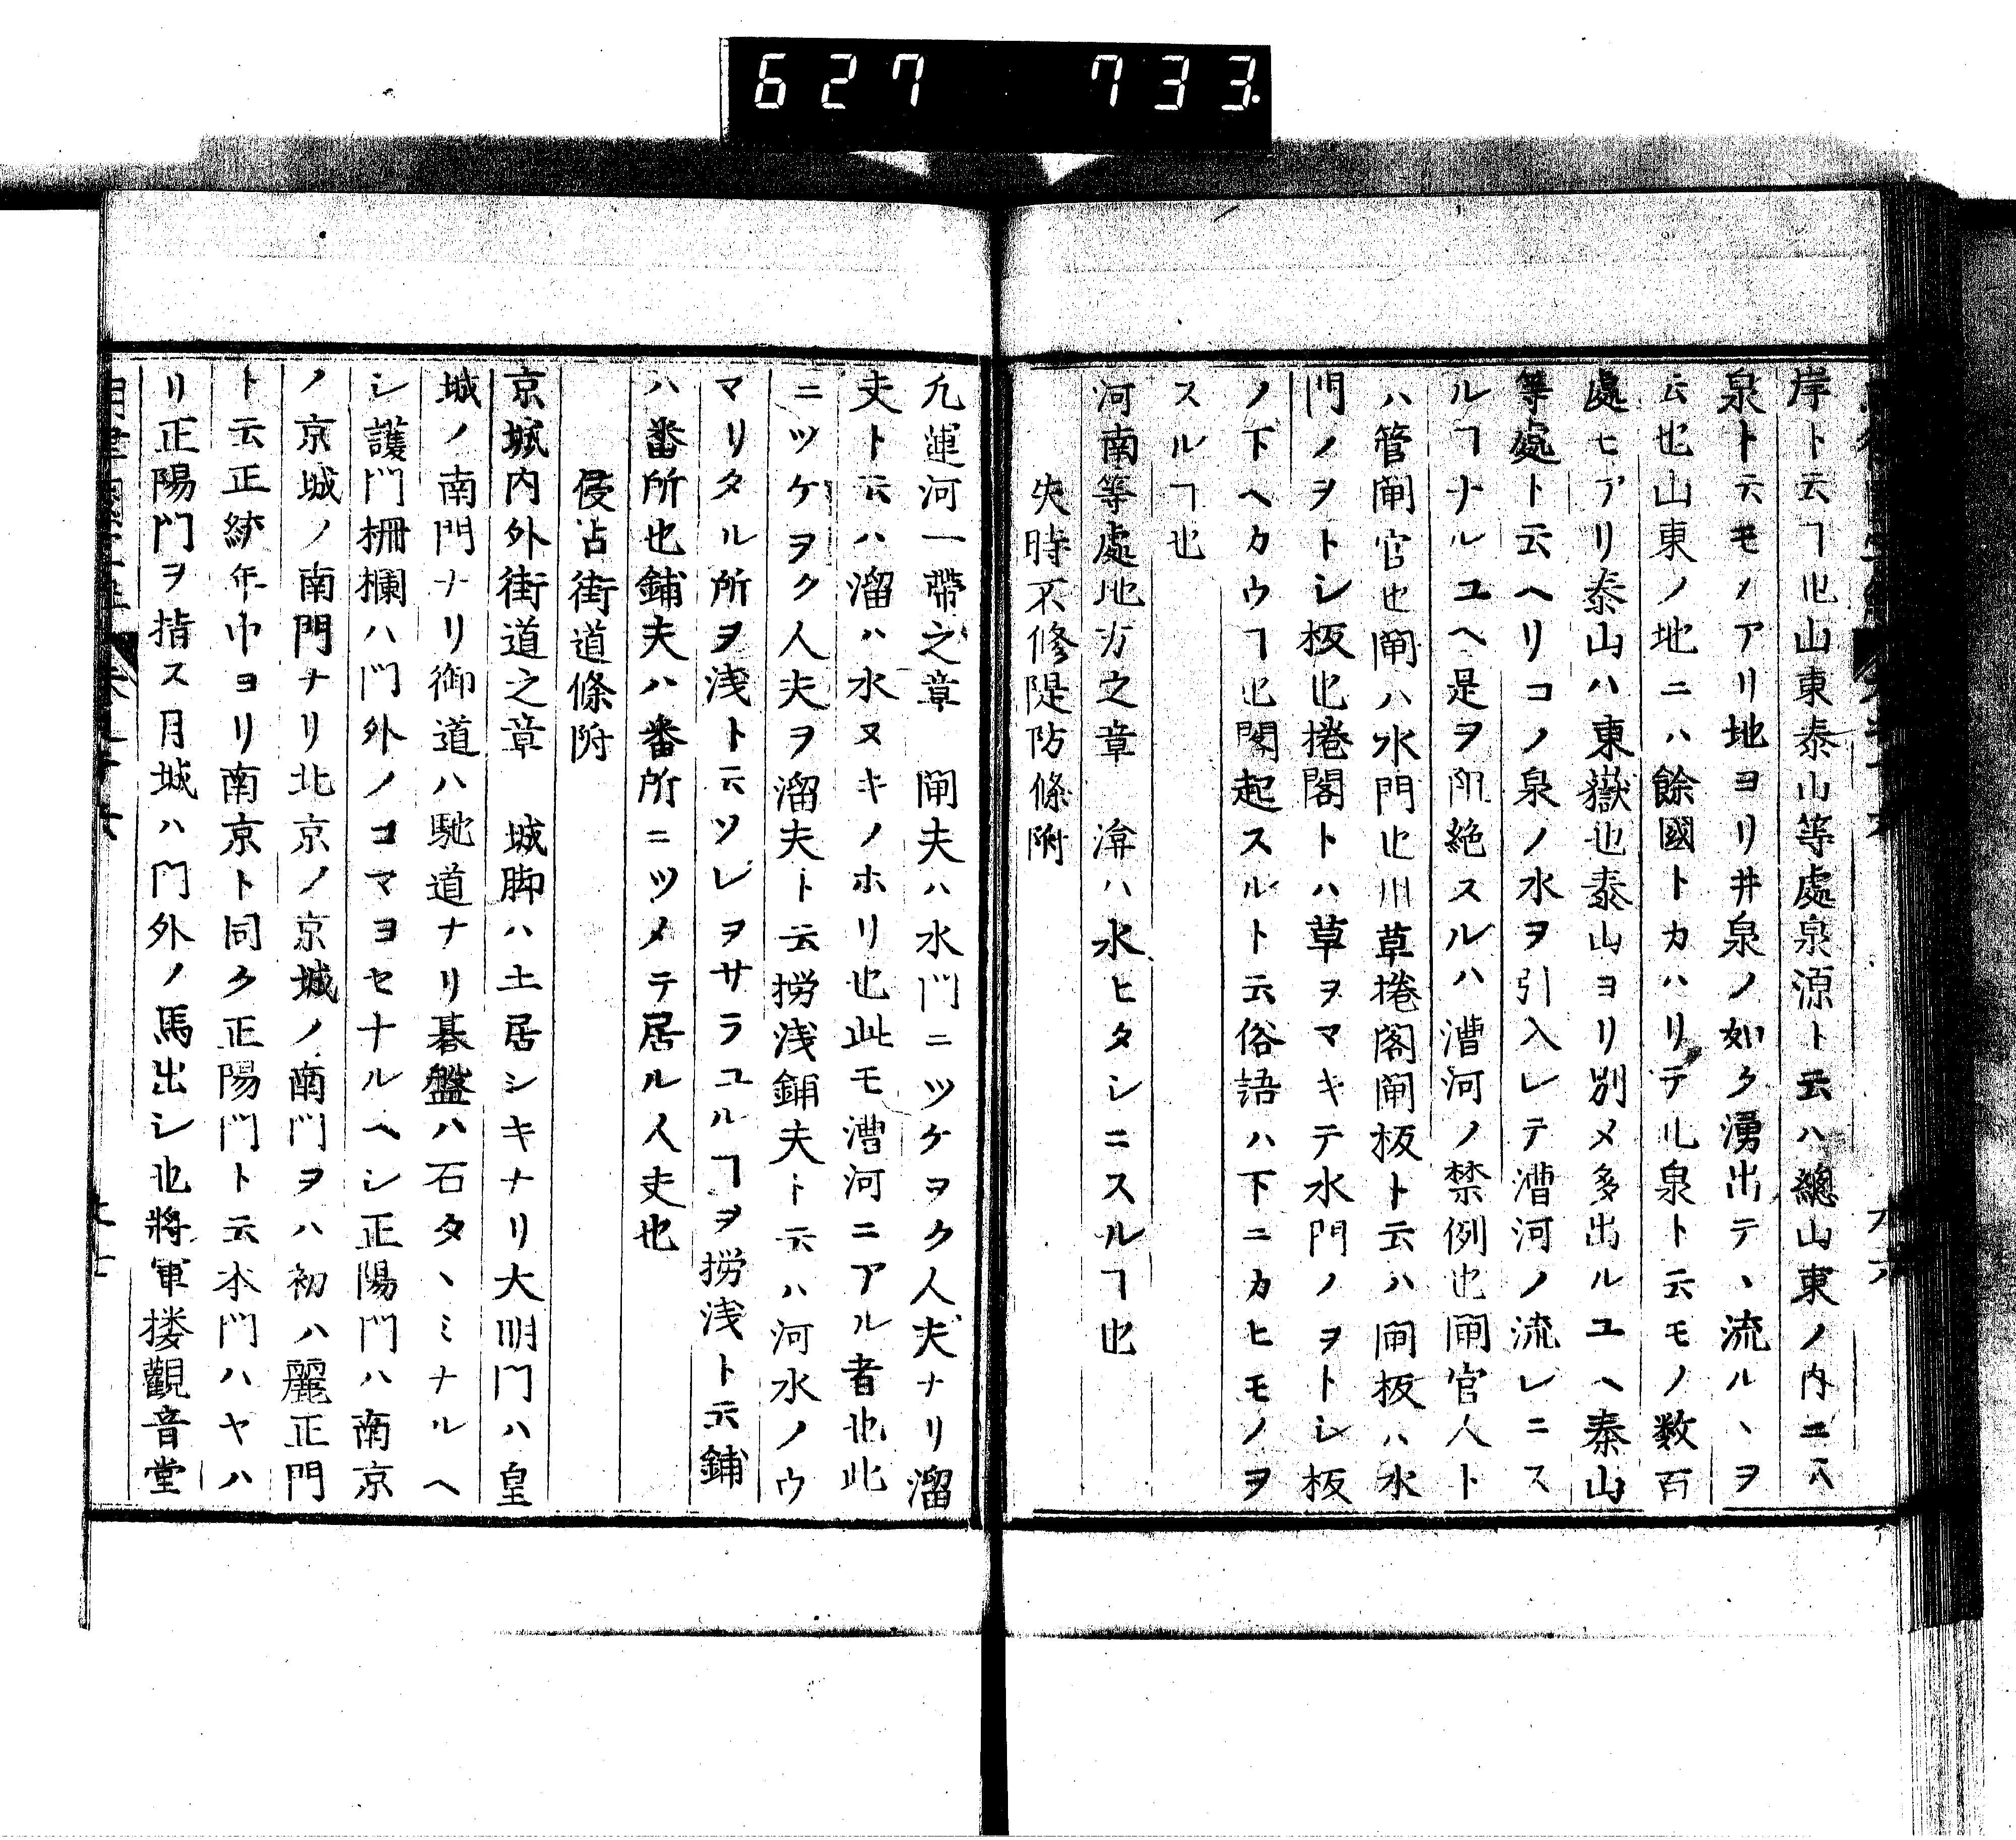 627 733
岸ト云ヿ也山東泰山等處泉源ト云ハ總山東ノ内ニハ
泉ト云モノアリ地ヨリ井泉ノ如ク湧出テヽ流ルヽヲ
云也山東ノ地ニハ餘國トカハリテ此泉ト云モノ数百
處ヒアリ泰山ハ東嶽也泰山ヨリ別メ多出ルユヘ泰山
等處ト云ヘリコノ泉ノ水ヲ引入レテ漕河ノ流レニス
ルヿナルユヘ是ヲ阻絶スルハ漕河ノ禁例也閘官人ト
ハ管閘官也閘ハ水門也川草捲閣閘板ト云ハ閘板ハ水
門ノヲトシ板也捲閣トハ草ヲマキテ水門ノヲトシ板
ノ下ヘカウヿ也閣起スルト云俗語ハ下ニカヒモノヲ
スルヿ也
河南等處地方之章 渰ハ水ヒタシニスルヿ也
失時不修隄防條附
凡運河一帶之章 閘夫ハ水門ニツケヲク人夫ナリ溜
夫ト云ハ溜ハ水ヌキノホリ也此モ漕河ニアル者也此
ニツケヲク人夫ヲ溜夫ト云撈浅鋪夫ト云ハ河水ノウ
マリタル所ヲ浅ト云ソレヲサラユルヿヲ撈浅ト云鋪
ハ番所也鋪夫ハ番所ニツメテ居ル人夫也
侵占街道條附
京城内外街道之章 城脚ハ土居シキナリ大明門ハ皇
城ノ南門ナリ御道ハ馳道ナリ碁盤ハ石タヽミナルヘ
シ護門柵欄ハ門外ノコマヨセナルヘシ正陽門ハ南京
ノ京城ノ南門ナリ北京ノ京城ノ南門ヲハ初ハ麗正門
ト云正統年中ヨリ南京ト同ク正陽門ト云本門ハヤハ
リ正陽門ヲ指ス月城ハ門外ノ馬出シ也將軍楼觀音堂